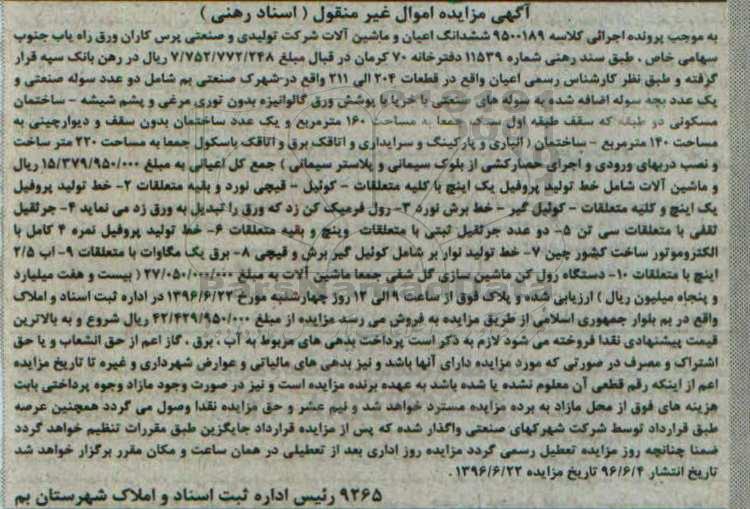 آگهی مزایده اموال غیر منقول ( اسناد رهنی )
به موجب پرونده اجرائی کلاسه ۹۵۰۰۱۸۹ ششدانگ اعیان و ماشین آلات شرکت تولیدی و صنعتی پرس کاران ورق راه یاب جنوب
سهامی خاص . طبق سند رهنی شماره ۱۱۵۳۹ دفترخانه ۷۰ کرمان در قبال مبلغ ۷/۷۵۲/۷۷۲/۲۴۸ ریال در رهن بانک سپه قرار
گرفته و طبق نظر کارشناس رسمی اعیان واقع در قطعات ۲۰۴ الی ۲۱۱ واقع در شهرک صنعتی بم شامل دو عدد سوله صنعتی و
یک عدد بچه سوله اضافه شده به سوله های صنعتی با خرپا با پوشش ورق گالوانیزه بدون توری مرغی و پشم شیشه - ساختمان
مسکونی دو طبقه که سقف طبقه اول سوله جمعا به مساحت ۱۶۰ مترمربع و یک عدد ساختمان بدون سقف و دیوارچینی به
مساحت ۱۴۰ مترمربع - ساختمان ( انباری و پارکینگ و سرایداری و اتاقک برق و اتاقک باسکول جمعا به مساحت ۲۲۰ متر ساخت
و نصب دربهای ورودی و اجرای حصارکشی از بلوک سیمانی و پلاستر سیمانی ) جمع کل اعیانی به مبلغ ۱۵/۳۷۹/۹۵۰/۰۰۰ ریال
و ماشین آلات شامل خط تولید پروفیل یک اینچ با کلیه متعلقات - کوئیل - قیچی نورد و بقیه متعلقات ۲- خط تولید پروفیل
یک اینچ و کلیه متعلقات - کوئیل گیر - خط برش نورد ۳- رول فرمیک کن زد که ورق را تبدیل به ورق زد می نماید ۴- جرثقیل
ثقفی با متعلقات سی تن ۵- دو عدد جرثقیل ثبتی با متعلقات وینچ و بقیه متعلقات ۶- خط تولید پروفیل نمره ۴ کامل با
الکتروموتور ساخت کشور چین ۷- خط تولید نوار بر شامل کوئیل گیر برش و قیچی ۸- برق یک مگاوات با متعلقات ۹- اب ۲/۵
اینچ با متعلقات ۱۰- دستگاه رول کن ماشین سازی گل شفی جمعا ماشین آلات به مبلغ ۲۷/۰۵۰/۰۰۰/۰۰۰ ( بیست و هفت میلیارد
و پنجاه میلیون ریال ) ارزیابی شده و پلاک فوق از ساعت ۹ الی ۱۲ روز چهارشنبه مورخ ۱۳۹۶/۶/۲۲ در اداره ثبت اسناد و املاک
واقع در بم بلوار جمهوری اسلامی از طریق مزایده به فروش می رسد مزایده از مبلغ ۴۲/۴۲۹/۹۵۰/۰۰۰ ریال شروع و به بالاترین
قیمت پیشنهادی نقدا فروخته می شود لازم به ذکر است پرداخت بدهی های مربوط به آب ، برق ، گاز اعم از حق انشعاب و یا حق
اشتراک و مصرف در صورتی که مورد مزایده دارای آنها باشد و نیز بدهی های مالیاتی و عوارض شهرداری و غیره تا تاریخ مزایده
اعم از اینکه رقم قطعی آن معلوم نشده یا شده باشد به عهده برنده مزایده است و نیز در صورت وجود مازاد وجوه پرداختی بابت
هزینه های فوق از محل مازاد به برده مزایده مسترد خواهد شد و نیم عشر و حق مزایده نقدا وصول می گردد همچنین عرصه
طبق قرارداد توسط شرکت شهرکهای صنعتی واگذار شده که پس از مزایده قرارداد جایگزین طبق مقررات تنظیم خواهد گردد
ضمنا چنانچه روز مزایده تعطیل رسمی گردد مزایده روز اداری بعد از تعطیلی در همان ساعت و مکان مقرر برگزار خواهد شد
تاریخ انتشار ۹۶/۶/۴ تاریخ مزایده ۱۳۹۶/۶/۲۲ .
۹۲۶۵ رئیس اداره ثبت اسناد و املاک شهرستان بم